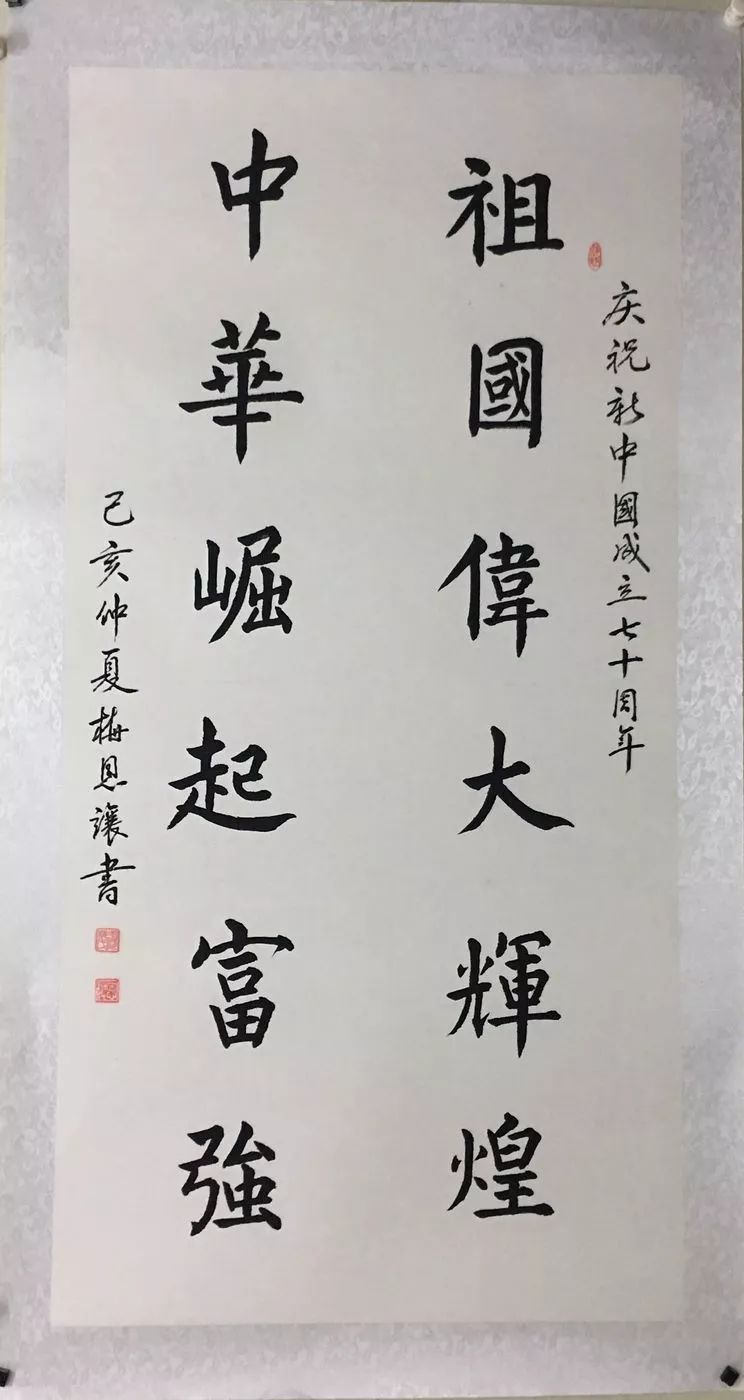 庆祝新中國成立七十周年
祖國偉大輝煌
中華崛起富強
己亥仲夏梅恩讓書